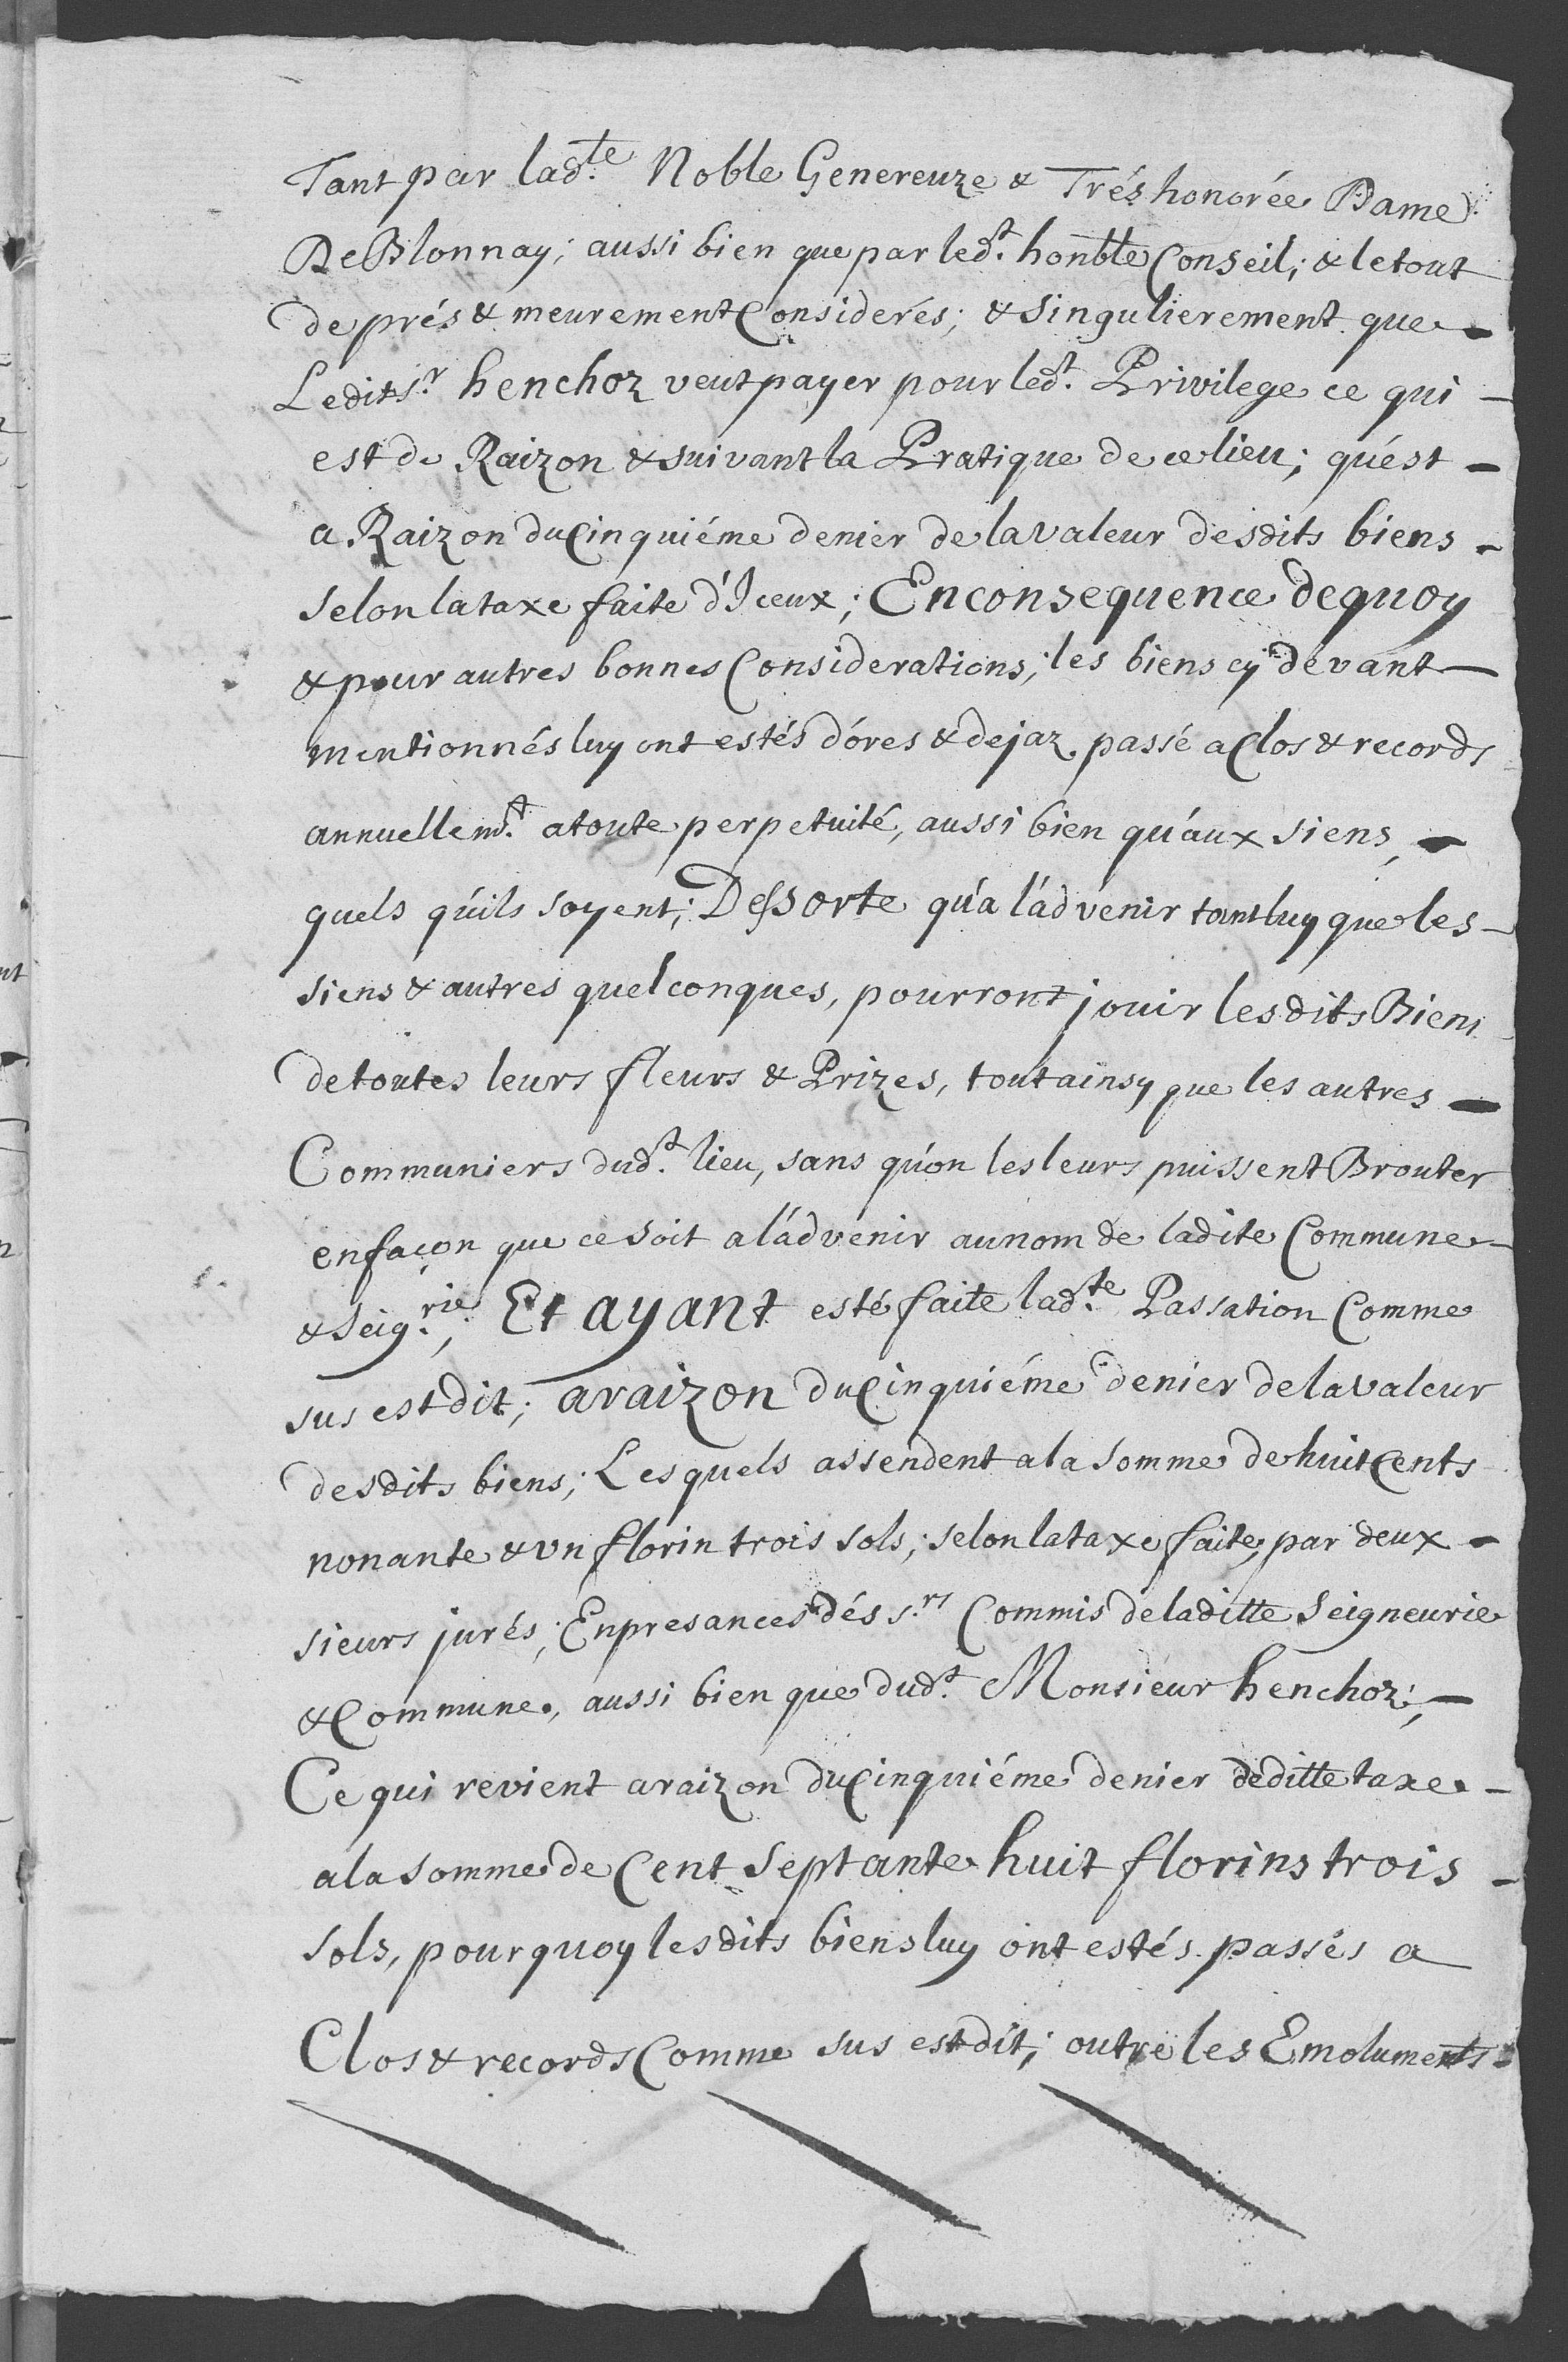 Tant par lad.te Noble Genereuze & Trés honorée Dame
De Blonnay; aussi bien que par led.t honble Conseil; & le tout
de prés & meurement Considerés; & singulierement que -
Ledit s.r henchoz veut payer pour led.t Privilege ce qui -
est de Raizon & suivant la Pratique de ce lieu; qu'est -
a Raizon du Cinquiéme denier de la valeur desdits biens -
selon la taxe faite d'Iceux; En consequence de quoy
& pour autres bonnes Considerations; les biens cy devant -
mentionnés luy ont estés d'óres & dejaz passé a Clos & records
annuellem.t a toute perpetuité, aussi bien qu'aux siens, -
quels qu'ils soyent; Dessorte qu'a l'advenir tant luy que les -
siens & autres quelconques, pourront jouir lesdits Biens
de toutes leurs fleurs & Prizes, tout ainsy que les autres -
Communiers dud.t lieu, sans qu'on les leurs puissent Brouter
en façon que ce soit a l'advenir au nom de ladite Commune -
& Seig.rie; Et ayant esté faite lad.te Passation Comme
sus est dit; a raizon du Cinquiéme denier de la valeur
desdits biens; Lesquels assendent a la somme de huit Cents
nonante & vn florin trois sols; selon la taxe faite, par deux -
sieurs jurés; En presances dés s.rs Commis de laditte Seigneurie
& Commune, aussi bien que dud.t Monsieur henchoz; -
Ce qui revient a raizon du Cinquiéme denier de ditte taxe -
a la somme de Cent Septante huit florins trois -
sols, pour quoy lesdits biens luy ont estés passés a
Clos & records Comme sus est dit; outre les Emoluments -